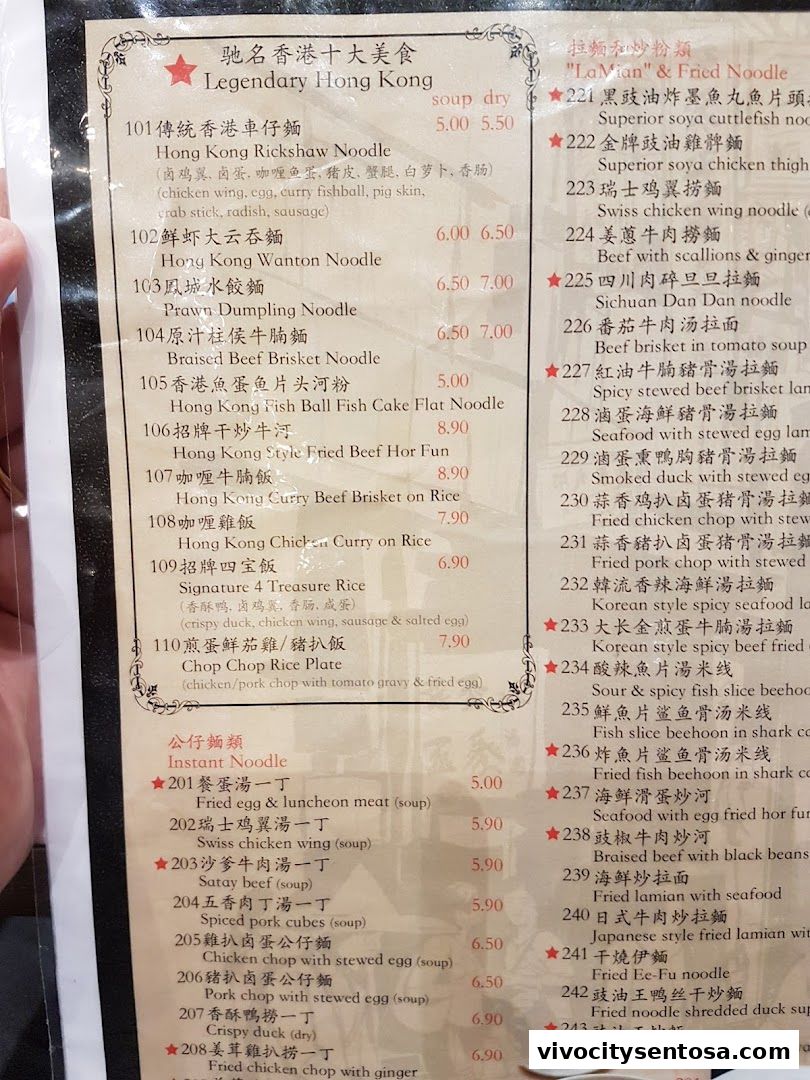 驰名香港十大美食
Legendary Hong Kong
soup dry
101傳統香港車仔麵 5.00 5.50
Hong Kong Rickshaw Noodle
(卤鸡翼, 卤蛋, 咖喱鱼蛋, 猪皮, 蟹腿, 白萝卜, 香肠)
(chicken wing, egg, curry fishball, pig skin,
crab stick, radish, sausage)
102鮮虾大云吞麵 6.00 6.50
Hong Kong Wanton Noodle
103鳳城水餃麵 6.50 7.00
Prawn Dumpling Noodle
104原汁柱侯牛腩麵 6.50 7.00
Braised Beef Brisket Noodle
105香港魚蛋鱼片头河粉 5.00
Hong Kong Fish Ball Fish Cake Flat Noodle
106招牌干炒牛河 8.90
Hong Kong Style Fried Beef Hor Fun
107咖喱牛腩飯 8.90
Hong Kong Curry Beef Brisket on Rice
108咖喱雞飯 7.90
Hong Kong Chicken Curry on Rice
109招牌四宝飯 6.90
Signature 4 Treasure Rice
(香酥鸭, 卤鸡翼, 香肠, 咸蛋)
(crispy duck, chicken wing, sausage & salted egg)
110煎蛋鮮茄雞/豬扒飯 7.90
Chop Chop Rice Plate
(chicken/pork chop with tomato gravy & fried egg)
公仔麵類
Instant Noodle
201餐蛋湯一丁 5.00
Fried egg & luncheon meat (soup)
202瑞士鸡翼湯一丁 5.90
Swiss chicken wing (soup)
203沙爹牛肉湯一丁 5.90
Satay beef (soup)
204五香肉丁湯一丁 5.90
Spiced pork cubes (soup)
205雞扒卤蛋公仔麵 6.50
Chicken chop with stewed egg (soup)
206豬扒卤蛋公仔麵 6.50
Pork chop with stewed egg (soup)
207香酥鴨捞一丁 6.90
Crispy duck (dry)
208姜茸雞扒捞一丁 6.90
Fried chicken chop with ginger
拉麵和炒粉類
"LaMian" & Fried Noodle
221黑豉油炸墨魚丸魚片頭
Superior soya cuttlefish noo
222金牌豉油雞髀麵
Superior soya chicken thigh
223瑞士鸡翼捞麵
Swiss chicken wing noodle
224姜蔥牛肉捞麵
Beef with scallions & ginger
225四川肉碎旦旦拉麵
Sichuan Dan Dan noodle
226番茄牛肉汤拉面
Beef brisket in tomato soup
227紅油牛腩豬骨湯拉麵
Spicy stewed beef brisket lam
228滷蛋海鮮豬骨湯拉麵
Seafood with stewed egg lam
229滷蛋熏鴨胸豬骨湯拉麵
Smoked duck with stewed eg
230蒜香鸡扒卤蛋猪骨湯拉麵
Fried chicken chop with stew
231蒜香豬扒卤蛋猪骨湯拉麵
Fried pork chop with stewed
232韓流香辣海鮮湯拉麵
Korean style spicy seafood la
233大长金煎蛋牛腩湯拉麵
Korean style spicy beef fried
234酸辣魚片湯米线
Sour & spicy fish slice beehoo
235鮮魚片鲨鱼骨汤米线
Fish slice beehoon in shark ca
236炸魚片鲨鱼骨汤米线
Fried fish beehoon in shark ca
237海鮮滑蛋炒河
Seafood with egg fried hor fun
238豉椒牛肉炒河
Braised beef with black beans
239海鮮炒拉面
Fried lamian with seafood
240日式牛肉炒拉麵
Japanese style fried lamian wit
241干燒伊麵
Fried Ee-Fu noodle
242豉油王鸭丝干炒麵
Fried noodle shredded duck sup
243
vivocitysentosa.com